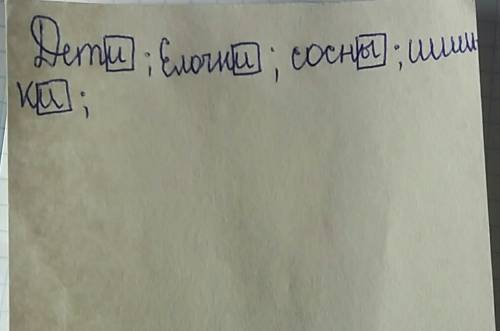 Дети; Ёлочки; сосны; шиш-
ки;